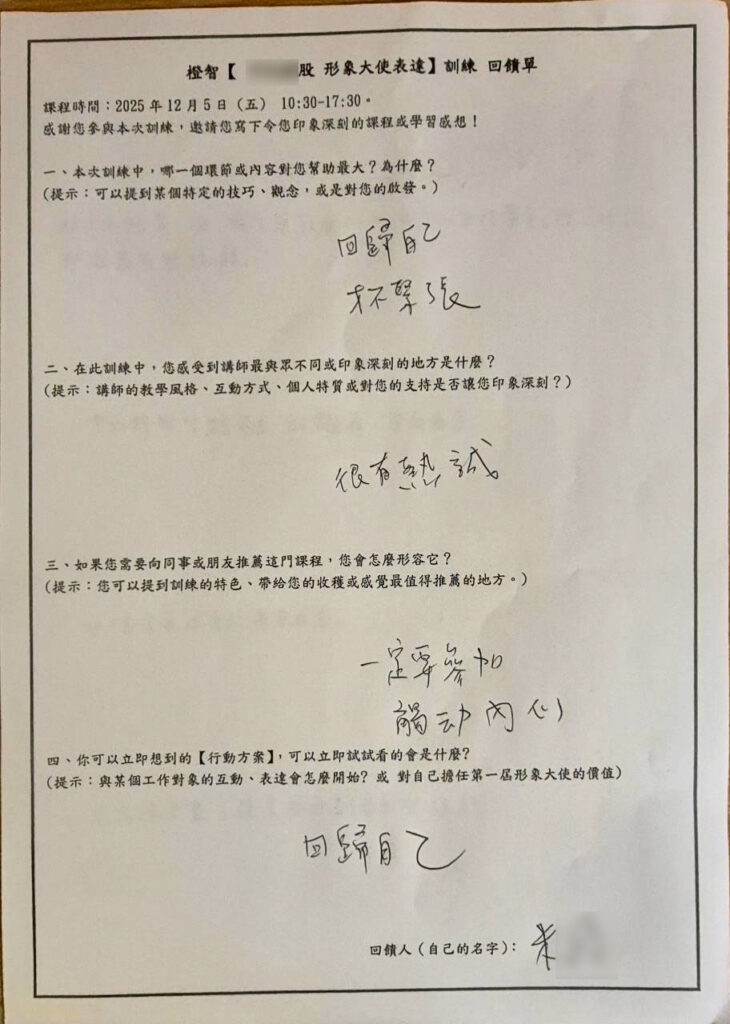 橙智【 股 形象大使表達】訓練 回饋單
課程時間：2025 年 12 月 5 日（五） 10:30-17:30。
感謝您參與本次訓練，邀請您寫下令您印象深刻的課程或學習感想！
一、本次訓練中，哪一個環節或內容對您幫助最大？為什麼？
(提示：可以提到某個特定的技巧、觀念，或是對您的啟發。)
回歸自己
才不緊張
二、在此訓練中，您感受到講師最與眾不同或印象深刻的地方是什麼？
(提示：講師的教學風格、互動方式、個人特質或對您的支持是否讓您印象深刻？)
很有熱誠
三、如果您需要向同事或朋友推薦這門課程，您會怎麼形容它？
(提示：您可以提到訓練的特色、帶給您的收穫或感覺最值得推薦的地方。)
一定要參加
觸动內心
四、你可以立即想到的【行動方案】，可以立即試試看的會是什麼?
(提示：與某個工作對象的互動、表達會怎麼開始? 或 對自己擔任第一屆形象大使的價值)
回歸自己
回饋人（自己的名字）：